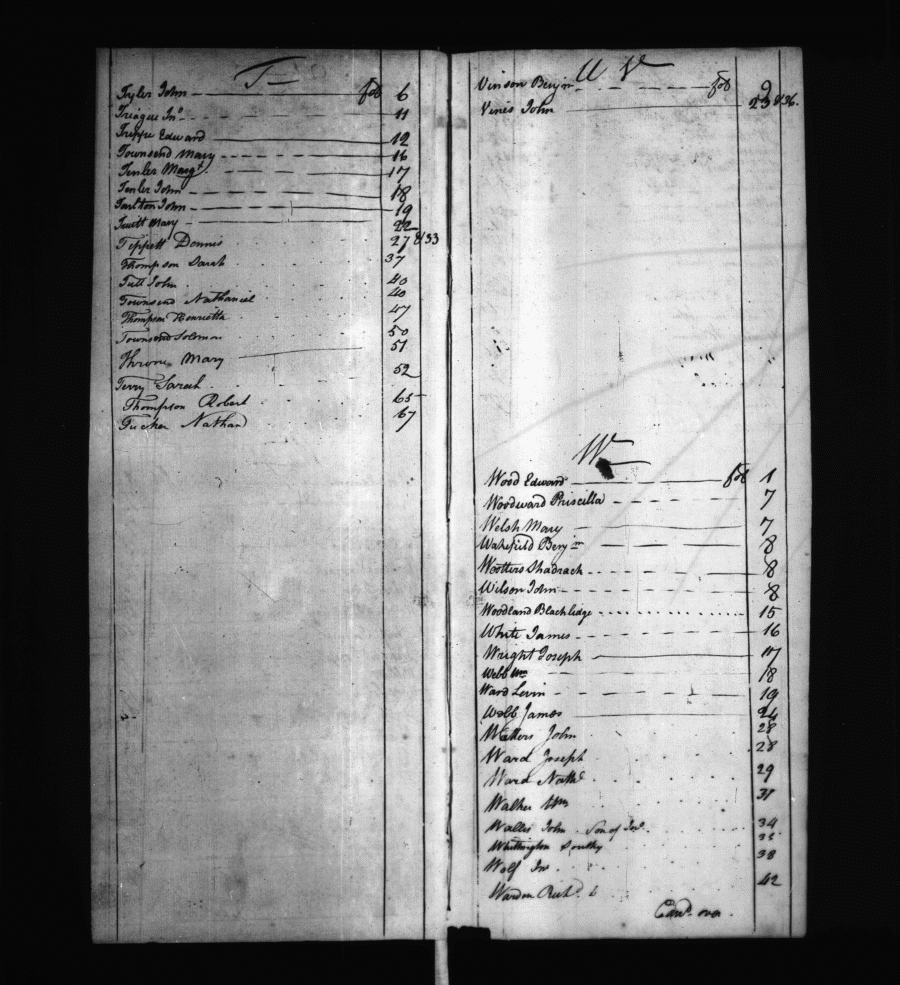 T
Tyler John fol 6
Treague Jno 11
Trippe Edward 12
Townsend Mary 16
Tenler Margt 17
Tenler John 18
Tarlton John 19
Truitt Mary 22
Teppett Dennis 27 & 33
Thompson Sarah 37
Tull John 40
Townsend Nathaniel 40
Thompson Henrietta 47
Townsend Solomon 50
Mary 51
Terry Sarah 52
Thompson Robert 65
Tucker Nathan 67
U V
Vinson Benjn fol 9
Vines John 23 & 36.
W
Wood Edward fol 1
Woodward Priscilla 7
Welsh Mary 7
Wakefield Benjn 8
Wootters Shadrach 8
Wilson John 8
Woodland Blackledge 15
White James 16
Wright Joseph 17
Webb Wm 18
Ward Levin 19
Webb James 24
Watters John 28
Ward Joseph 28
Ward Nathl 29
Walker Wm 31
Walles John Son of Jno. 34
Whittington Southy
Wolf Jno 38
Warden Richd 42
Card. over.